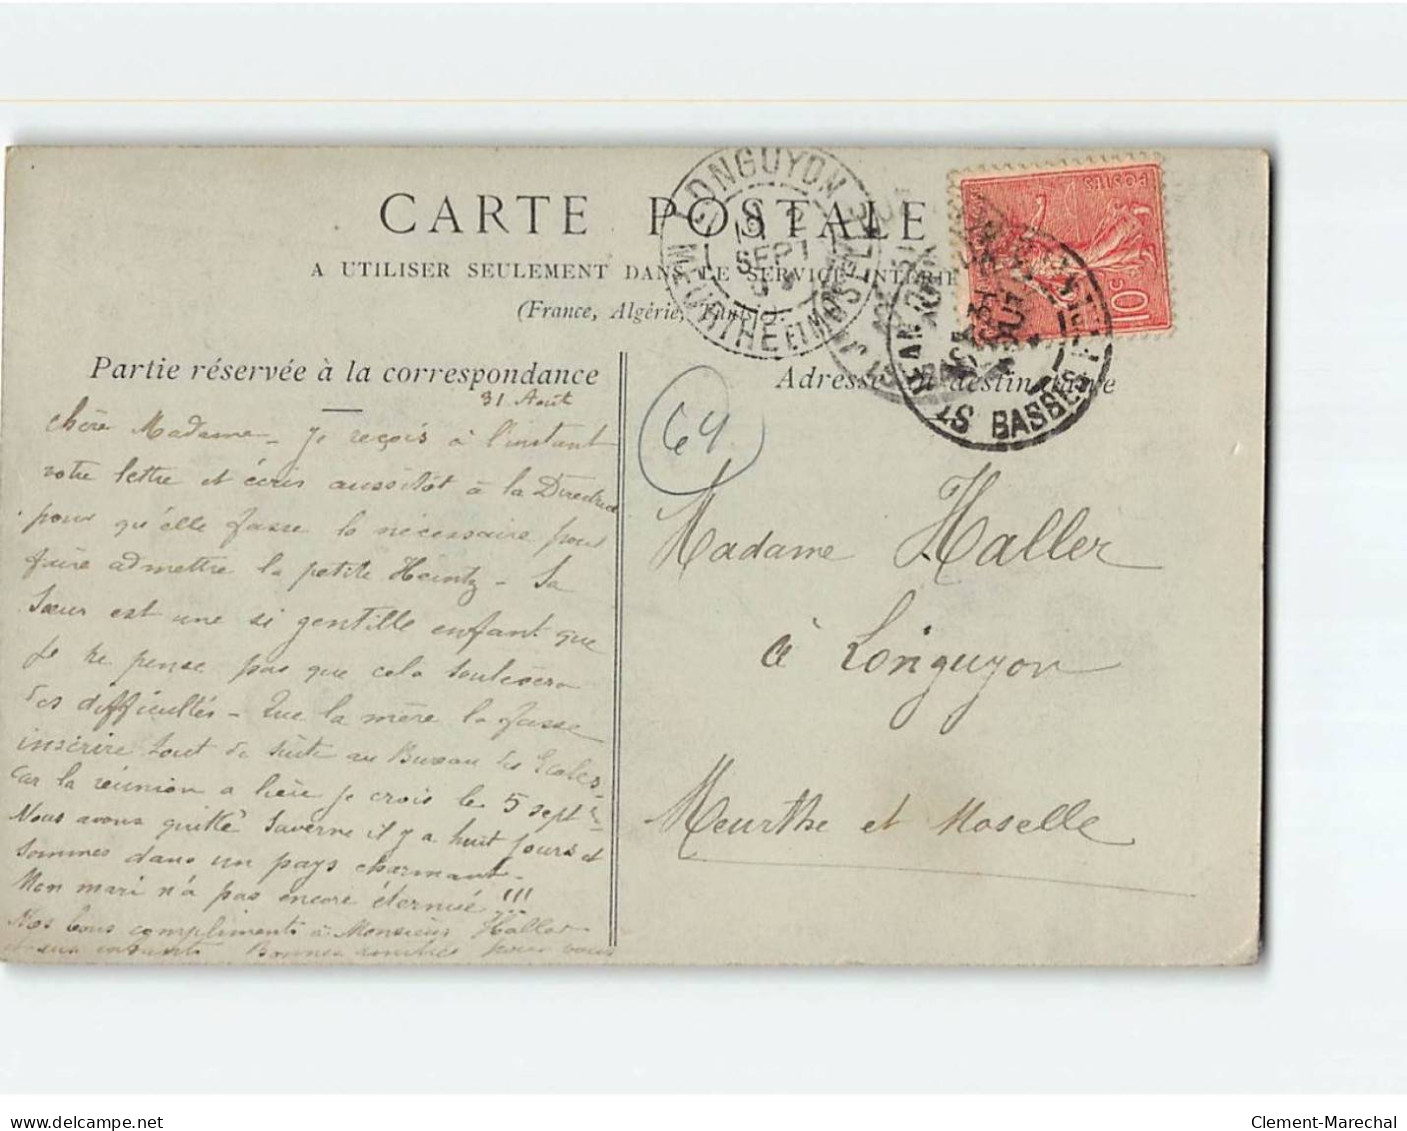 CARTE POSTALE
A UTILISER SEULEMENT DANS LE SERVICE INTÉRIE
(France, Algérie, Tunisie).
LONGUYON
2
SEPT
MEURTHE ET MOSELLE
POSTES
10c
AOUT
BASSES
Partie réservée à la correspondance
Adresse du destinataire
31 Août
64
chère Madame - Je reçois à l'instant
votre lettre et écris aussitôt à la Directrice
pour qu'elle fasse le nécessaire pour
faire admettre la petite Heintz - Sa
sœur est une si gentille enfant que
je ne pense pas que cela soulèvera
des difficultés - Que la mère la fasse
inscrire tout de suite au Bureau des Ecoles
car la réunion a lieu je crois le 5 sept
Nous avons quitté Saverne il y a huit jours et
sommes dans un pays charmant -
Mon mari n'a pas encore éternué !!!
Nos bons compliments à Monsieur Haller
et ses enfants Bonnes amitiés pour vous
Madame Haller
à Longuyon
Meurthe et Moselle
www.delcampe.net
Clement-Marechal